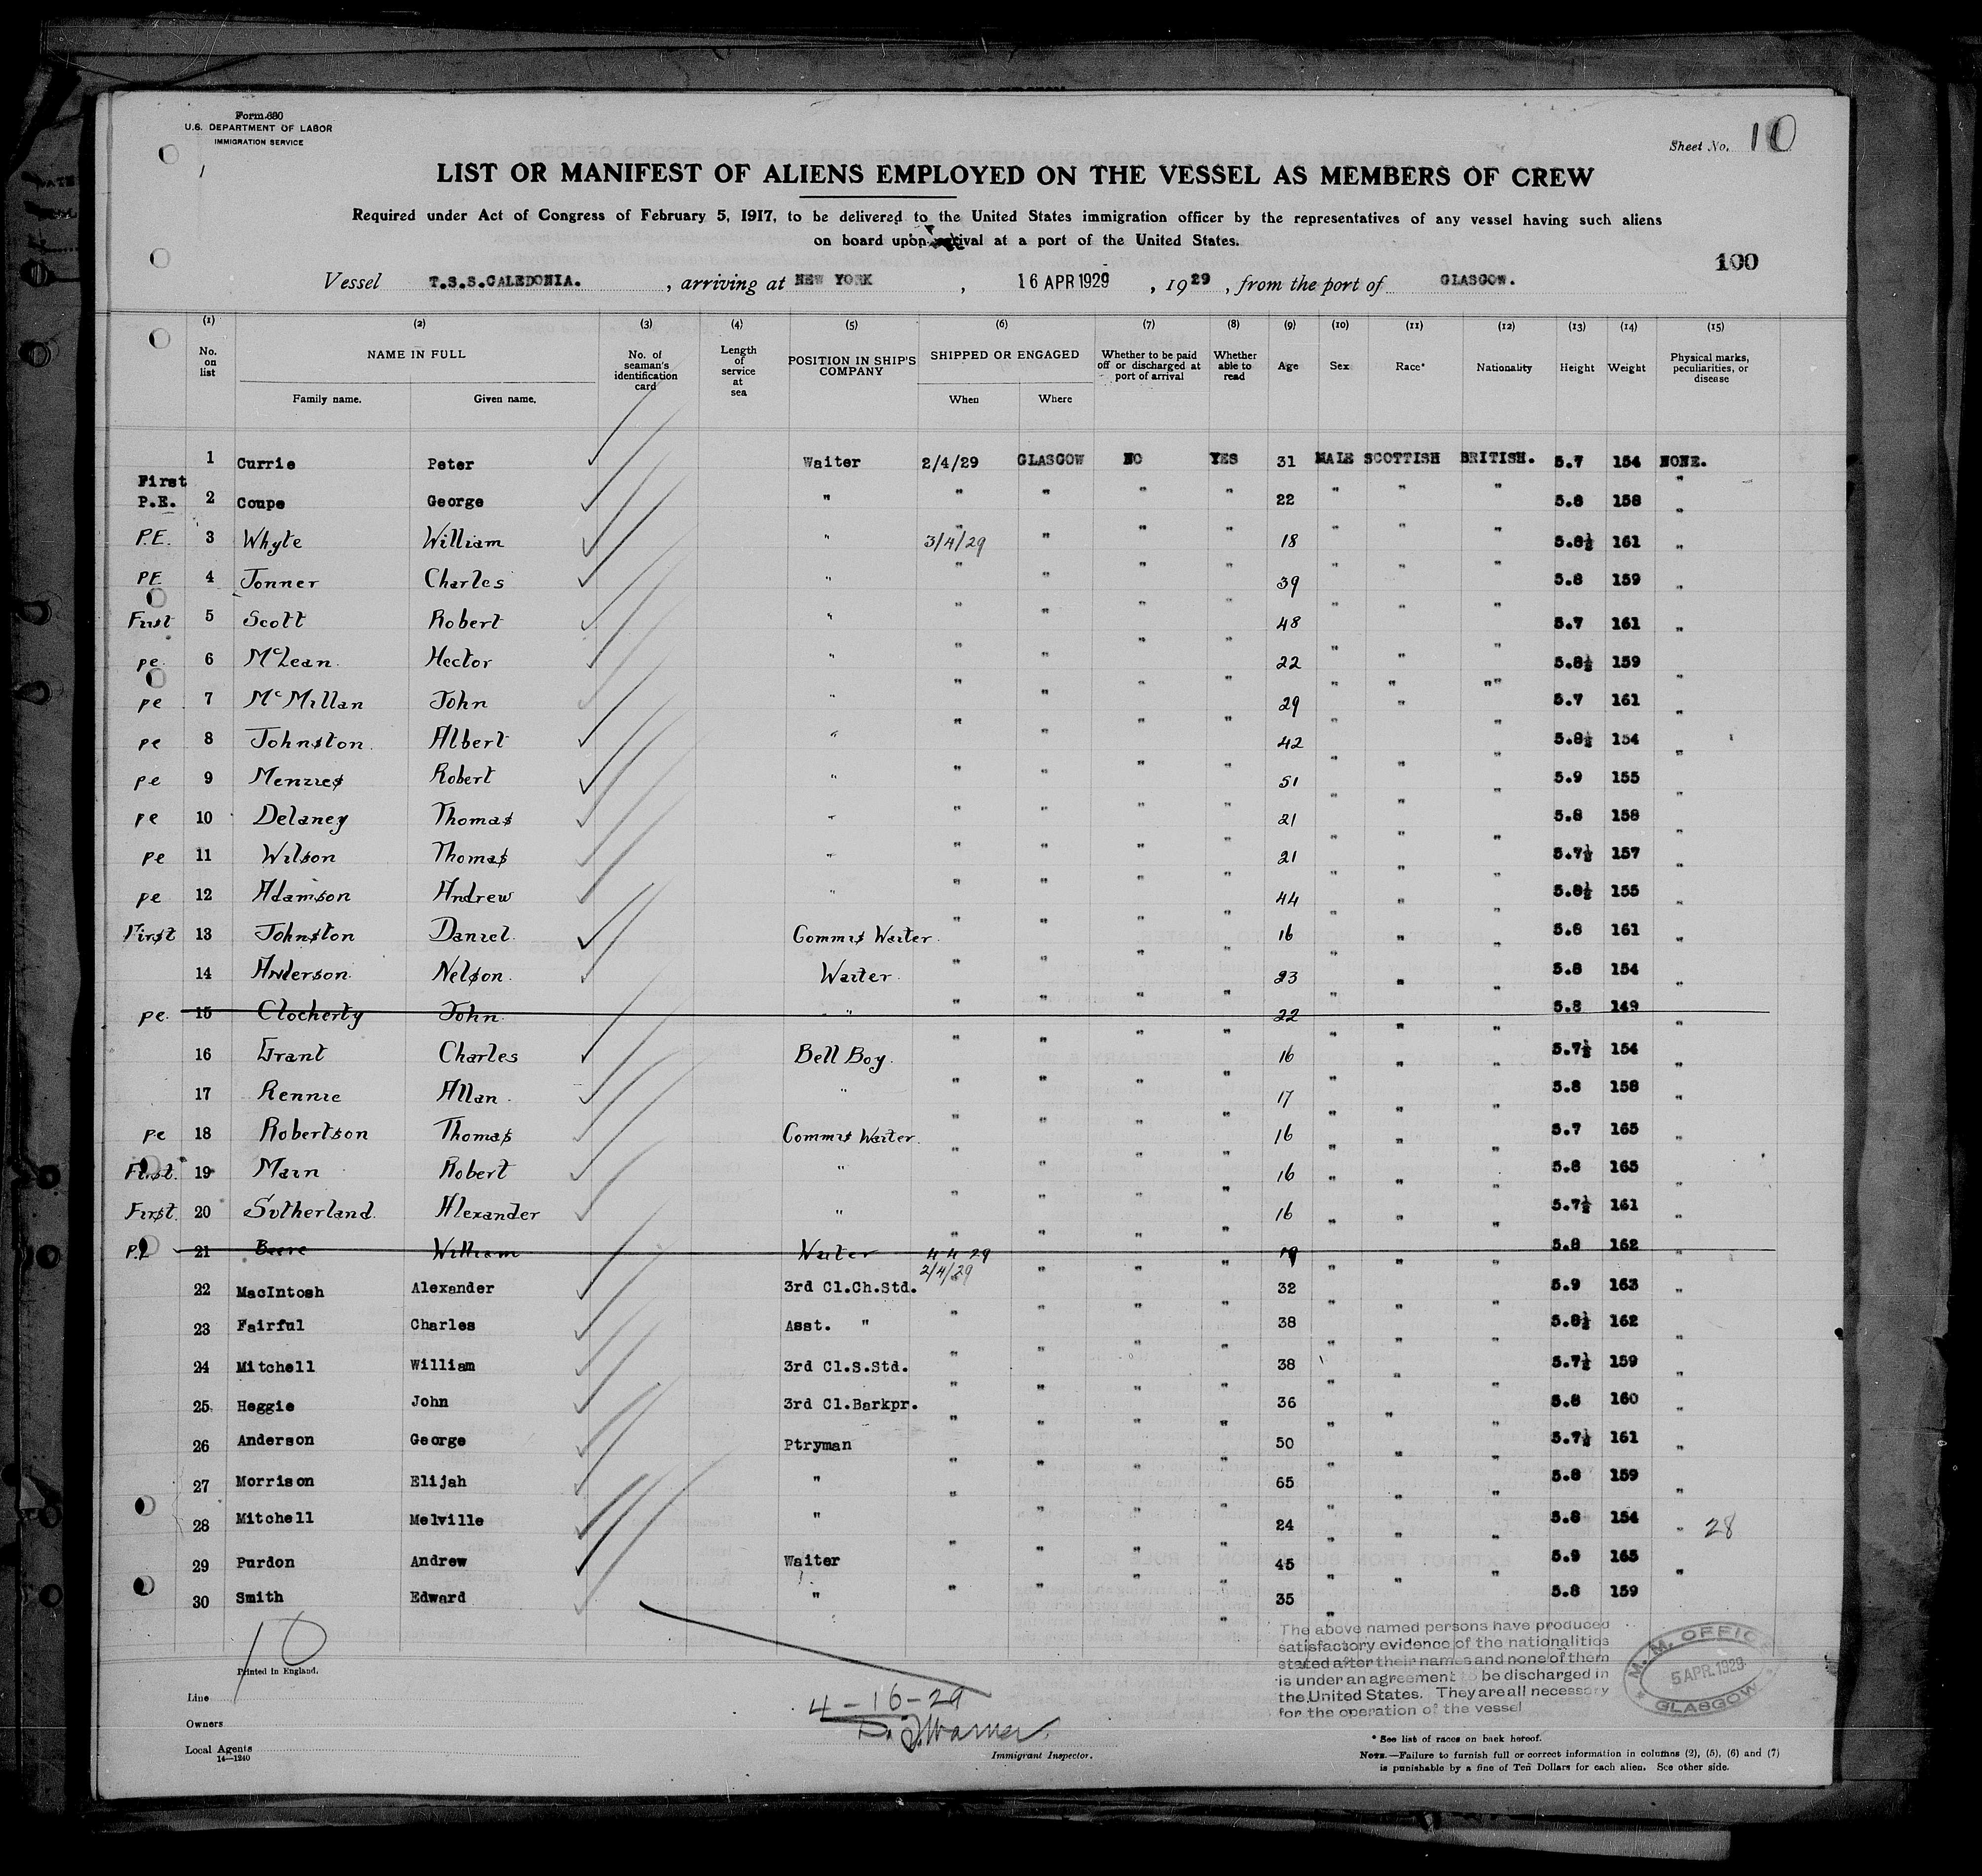 Form 680
U.S. DEPARTMENT OF LABOR
IMMIGRATION SERVICE
Sheet No. 10
LIST OR MANIFEST OF ALIENS EMPLOYED ON THE VESSEL AS MEMBERS OF CREW
Required under Act of Congress of February 5, 1917, to be delivered to the United States immigration officer by the representatives of any vessel having such aliens
on board upon arrival at a port of the United States.
100
Vessel T.S.S.CALEDONIA. , arriving at NEW YORK , 16 APR 1929 , 1929 , from the port of GLASGOW.
(1) (2) (3) (4) (5) (6) (7) (8) (9) (10) (11) (12) (13) (14) (15)
No. on list NAME IN FULL Family name. Given name. No. of seaman's identification card Length of service at sea POSITION IN SHIP'S COMPANY SHIPPED OR ENGAGED When Where Whether to be paid off or discharged at port of arrival Whether able to read Age Sex Race* Nationality Height Weight Physical marks, peculiarities, or disease
1 Currie Peter Waiter 2/4/29 GLASGOW NO YES 31 MALE SCOTTISH BRITISH. 5.7 154 NONE.
First
P.E. 2 Coupe George " " " " " 22 " " " 5.8 158 "
P.E. 3 Whyte William " " 3/4/29 " " " 18 " " " 5.8½ 161 "
PE 4 Tonner Charles " " " " " 39 " " " 5.8 159 "
First 5 Scott Robert " " " " " 48 " " " 5.7 161 "
pe 6 McLean Hector " " " " " 22 " " " 5.8½ 159 "
pe 7 McMillan John " " " " " 29 " " " 5.7 161 "
pe 8 Johnston Albert " " " " " 42 " " " 5.8½ 154 "
pe 9 Menzies Robert " " " " " 51 " " " 5.9 155 "
pe 10 Delaney Thomas " " " " " 21 " " " 5.8 158 "
pe 11 Wilson Thomas " " " " " 21 " " " 5.7½ 157 "
pe 12 Adamson Andrew " " " " " 44 " " " 5.8½ 155 "
First 13 Johnston Daniel Commis Waiter " " " " 16 " " " 5.8 161 "
14 Anderson Nelson Waiter " " " " 23 " " " 5.8 154 "
pe 15 Clocherty John " " " " " 22 " " " 5.8 149 "
16 Grant Charles Bell Boy " " " " 16 " " " 5.7½ 154 "
17 Rennie Allan " " " " " 17 " " " 5.8 158 "
pe 18 Robertson Thomas Commis Waiter " " " " 16 " " " 5.7 165 "
First 19 Main Robert " " " " " 16 " " " 5.8 165 "
First 20 Sutherland Alexander " " " " " 16 " " " 5.7½ 161 "
21 William Waiter 4 4 29 " " " 19 " " " 5.8 162 "
22 MacIntosh Alexander 3rd Cl.Ch.Std. 2/4/29 " " " 32 " " " 5.9 163 "
23 Fairful Charles Asst. " " " " " 38 " " " 5.8½ 162 "
24 Mitchell William 3rd Cl.S.Std. " " " " 38 " " " 5.7½ 159 "
25 Heggie John 3rd Cl.Barkpr. " " " " 36 " " " 5.8 160 "
26 Anderson George Ptryman " " " " 50 " " " 5.7½ 161 "
27 Morrison Elijah " " " " " 65 " " " 5.8 159 "
28 Mitchell Melville " " " " " 24 " " " 5.8 154 " 28
29 Purdon Andrew Waiter " " " " 45 " " " 5.9 165 "
30 Smith Edward " " " " " 35 " 5.8 159
The above named persons have produced
satisfactory evidence of the nationalities
stated after their names and none of them
is under an agreement to be discharged in
the United States. They are all necessary
for the operation of the vessel
M. M. OFFICE
5 APR. 1929
GLASGOW
10
Printed in England.
Line
Owners
Local Agents
14—1240
4-16-29
Immigrant Inspector.
* See list of races on back hereof.
NOTE.—Failure to furnish full or correct information in columns (2), (5), (6) and (7)
is punishable by a fine of Ten Dollars for each alien. See other side.